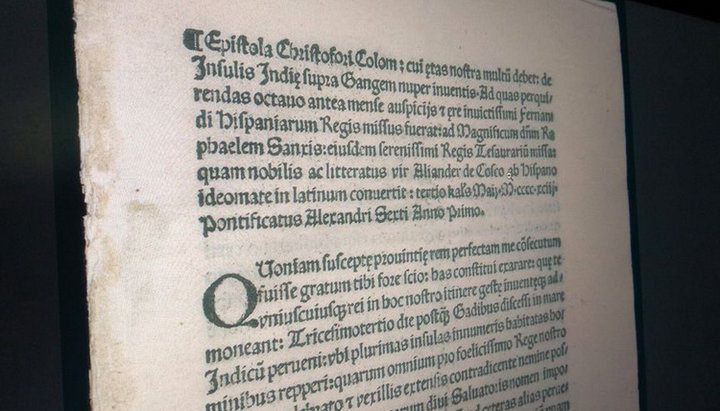 ¶ Epistola Christofori Colom: cui ętas nostra multũ debet: de
Insulis Indię supra Gangem nuper inuentis. Ad quas perqui⸗
rendas octauo antea mense auspicijs ⁊ ęre inuictissimi Fernan
di Hispaniarum Regis missus fuerat: ad Magnificum dñm Ra
phaelem Sanxis: eiusdem serenissimi Regis Tesaurariũ missa:
quam nobilis ac litteratus vir Aliander de Cosco ab Hispano
ideomate in latinum conuertit: tertio kal's Maij. M.cccc.xciij.
Pontificatus Alexandri Sexti Anno Primo.
Quoniam susceptę prouintię rem perfectam me cõsecutum
fuisse gratum tibi fore scio: has constitui exarare: quę te
vniuscuiusq; rei in hoc nostro itinere gestę inuentęq; ad⸗
moneant: Tricesimotertio die postq̃ Gadibus discessi in mare
Indicũ perueni: vbi plurimas insulas innumeris habitatas hom
minibus repperi: quarum omnium pro foelicissimo Rege nostro
⁊ vexillis extensis contradicente nemine pos⸗
diui Saluatoris nomen impo
alias peruen